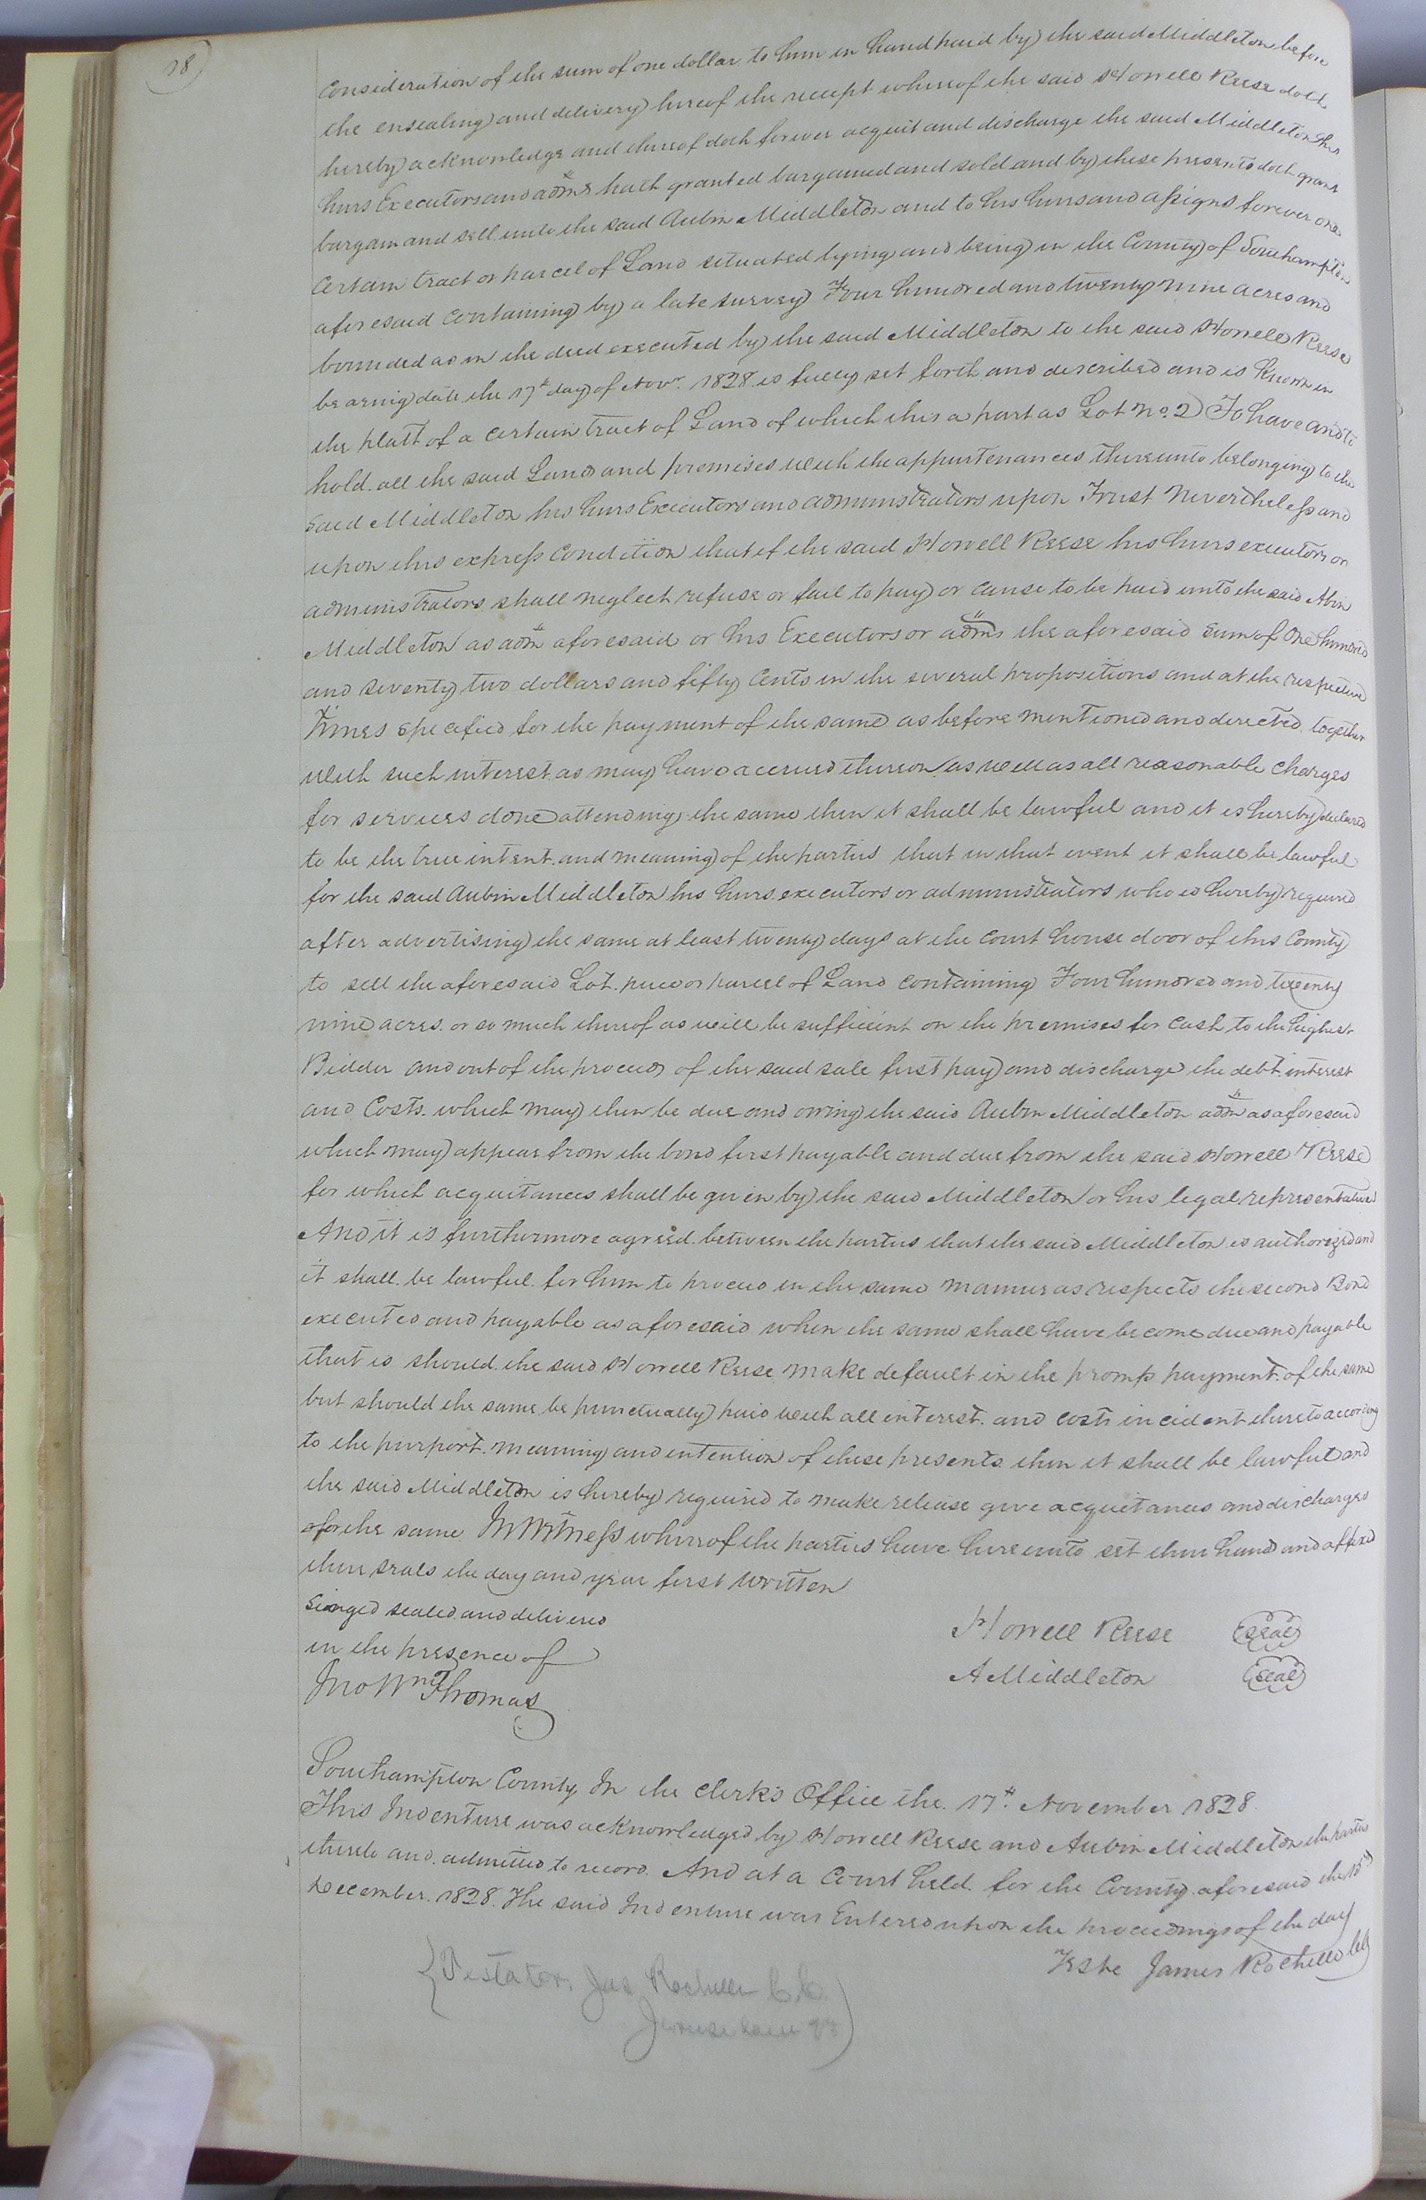 18
Consideration of the sum of one dollar to him in hand paid by the said Middleton before
the ensealing and delivery hereof the receipt whereof the said Howell Reese doth
hereby acknowledge and thereof doth forever acquit and discharge the said Middleton his
heirs Executors and admrs hath granted bargained and sold and by these presents doth grant
bargain and sell unto the said Aubin Middleton and to his heirs and assigns forever one
certain tract or parcel of Land situated lying and being in the County of Southampton
aforesaid containing by a late survey Four hundred and twenty nine acres and
bounded as in the deed executed by the said Middleton to the said Howell Reese
bearing date the 17th day of Novr. 1828 is fully set forth and described and is known in
the platt of a certain tract of Land of which this a part as Lot No. 2 To have and to
hold all the said Land and premises with the appurtenances thereunto belonging to the
said Middleton his heirs Executors and administrators upon Trust Nevertheless and
upon this express Condition that if the said Howell Reese his heirs executors or
administrators shall neglect refuse or fail to pay or cause to be paid unto the said Abin
Middleton as admr aforesaid or his Executors or admrs the aforesaid sum of One hundred
and seventy two dollars and fifty Cents in the several propositions and at the respective
Times specified for the payment of the same as before mentioned and directed together
with such interest as may have accrued thereon as well as all reasonable charges
for services done attending the same then it shall be lawful and it is hereby declared
to be the true intent and meaning of the parties that in that event it shall be lawful
for the said Aubin Middleton his heirs executors or administrators who is hereby required
after advertising the same at least twenty days at the court house door of this County
to sell the aforesaid Lot piece or parcel of Land containing Four hundred and twenty
nine acres or so much thereof as will be sufficient on the premises for cash to the highest
Bidder and out of the proceeds of the said sale first pay and discharge the debt interest
and Costs which may then be due and owing the said Aubin Middleton admr as aforesaid
which may appear from the bond first payable and due from the said Howell Reese
for which acquitances shall be given by the said Middleton or his legal representatives
And it is furthermore agreed between the parties that the said Middleton is authorized and
it shall be lawful for him to proceed in the same manner as respects the second Bond
executed and payable as aforesaid when the same shall have become due and payable
that is should the said Howell Reese make default in the promp payment of the same
but should the same be punctually paid with all interest and costs incident thereto according
to the purport meaning and intention of these presents then it shall be lawful and
the said Middleton is hereby required to make release give acquitances and discharges
for the same In Witness whereof the parties have hereunto set their hands and affixed
their seals the day and year first written
Seinged sealed and delivered
in the presence of
Jno Wm Thomas
Howell Reese (Seal)
A Middleton (Seal)
Southampton County In the Clerk's Office the 17th November 1828
This Indenture was acknowledged by Howell Reese and Aubin Middleton the parties
thereto and admitted to record And at a Court held for the County aforesaid the 15th
December 1828 The said Indenture was Entered upon the proceedings of the day
Teste James Rochelle
{Testator, Jas Rochelle C. C.
Jerusalem Va)